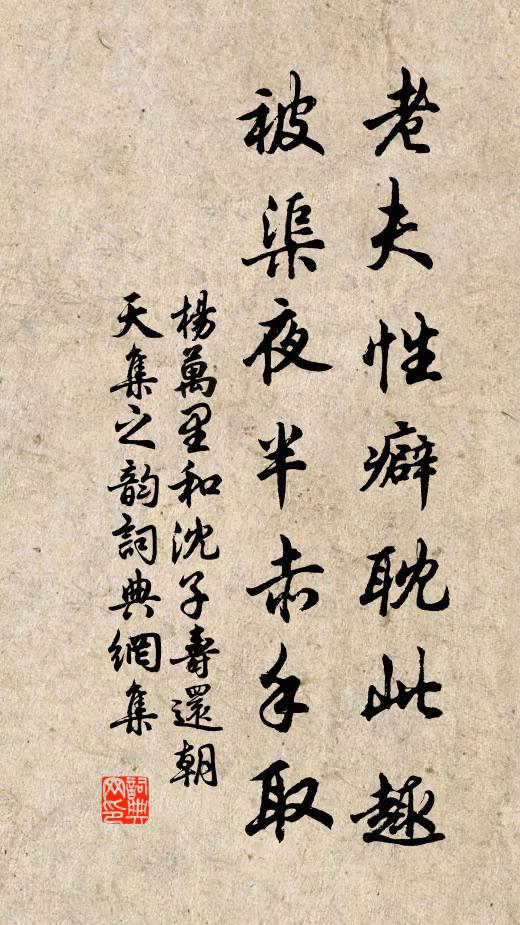 老夫性癖耽此趣
被渠夜半赤手取
楊萬里和沈子壽還朝
天集之韵詞典網集
詞典
网印